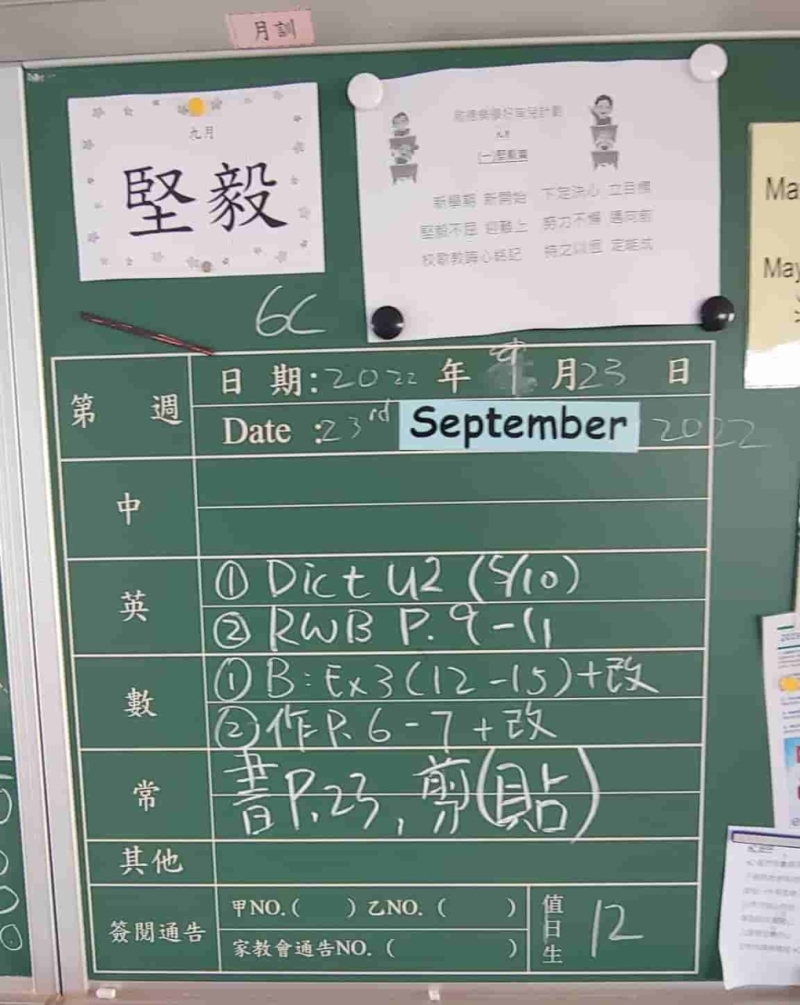 月訓
九月
堅毅
九月
(一)堅毅篇
新學期 新開始 下定決心 立目標
堅毅不屈 迎難上 努力不懈 邁向前
校歌教誨心銘記 持之以恆 定能成
Ma
May
6C
第 週
日 期:2022 年 九 月 23 日
Date :23rd September 2022
中
英
① Dict U2 (5/10)
② RWB P. 9-11
數
① B: Ex3(12-15)+改
② 作P. 6-7+改
常
書P.23, 剪(貼)
其他
簽閱通告
甲NO.( ) 乙NO. ( )
家教會通告NO. ( )
值日生
12